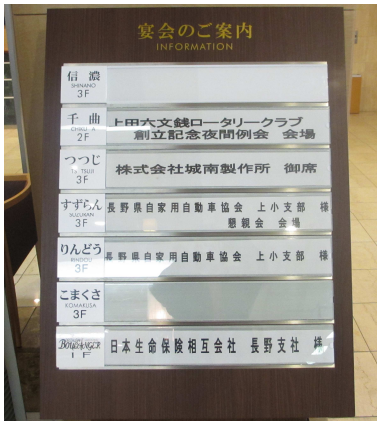 宴会のご案内
INFORMATION
信濃
SHINANO
3F
千曲
CHIKUMA
2F
上田六文銭ロータリークラブ
創立記念夜間例会 会場
つつじ
TSUTSUJI
3F
株式会社城南製作所 御席
すずらん
SUZURAN
3F
長野県自家用自動車協会 上小支部 様
懇親会 会場
りんどう
RINDOU
3F
長野県自家用自動車協会 上小支部 様
こまくさ
KOMAKUSA
3F
BOULANGER
1F
日本生命保険相互会社 長野支社 様